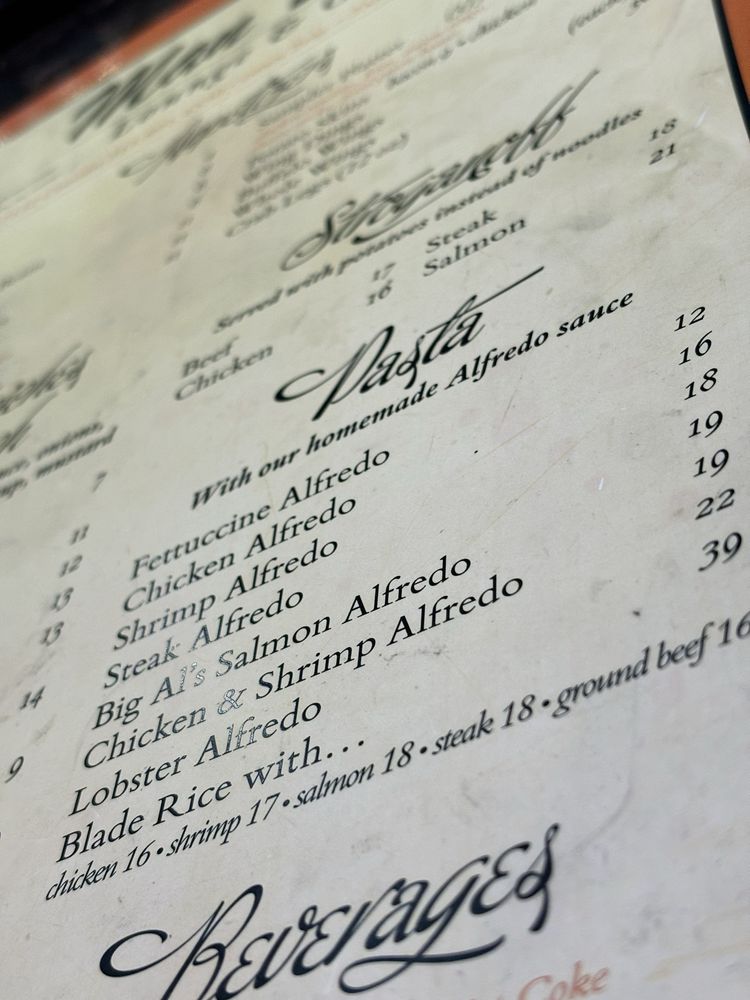 Stroganoff
Served with potatoes instead of noodles
Beef 17 Steak 18
Chicken 16 Salmon 21
Pasta
With our homemade Alfredo sauce
Fettuccine Alfredo 12
Chicken Alfredo 16
Shrimp Alfredo 18
Steak Alfredo 19
Big Al's Salmon Alfredo 19
Chicken & Shrimp Alfredo 22
Lobster Alfredo 39
Blade Rice with...
chicken 16 • shrimp 17 • salmon 18 • steak 18 • ground beef 16
Beverages
Coke
onions,
mustard
7
11
12
13
13
14
9